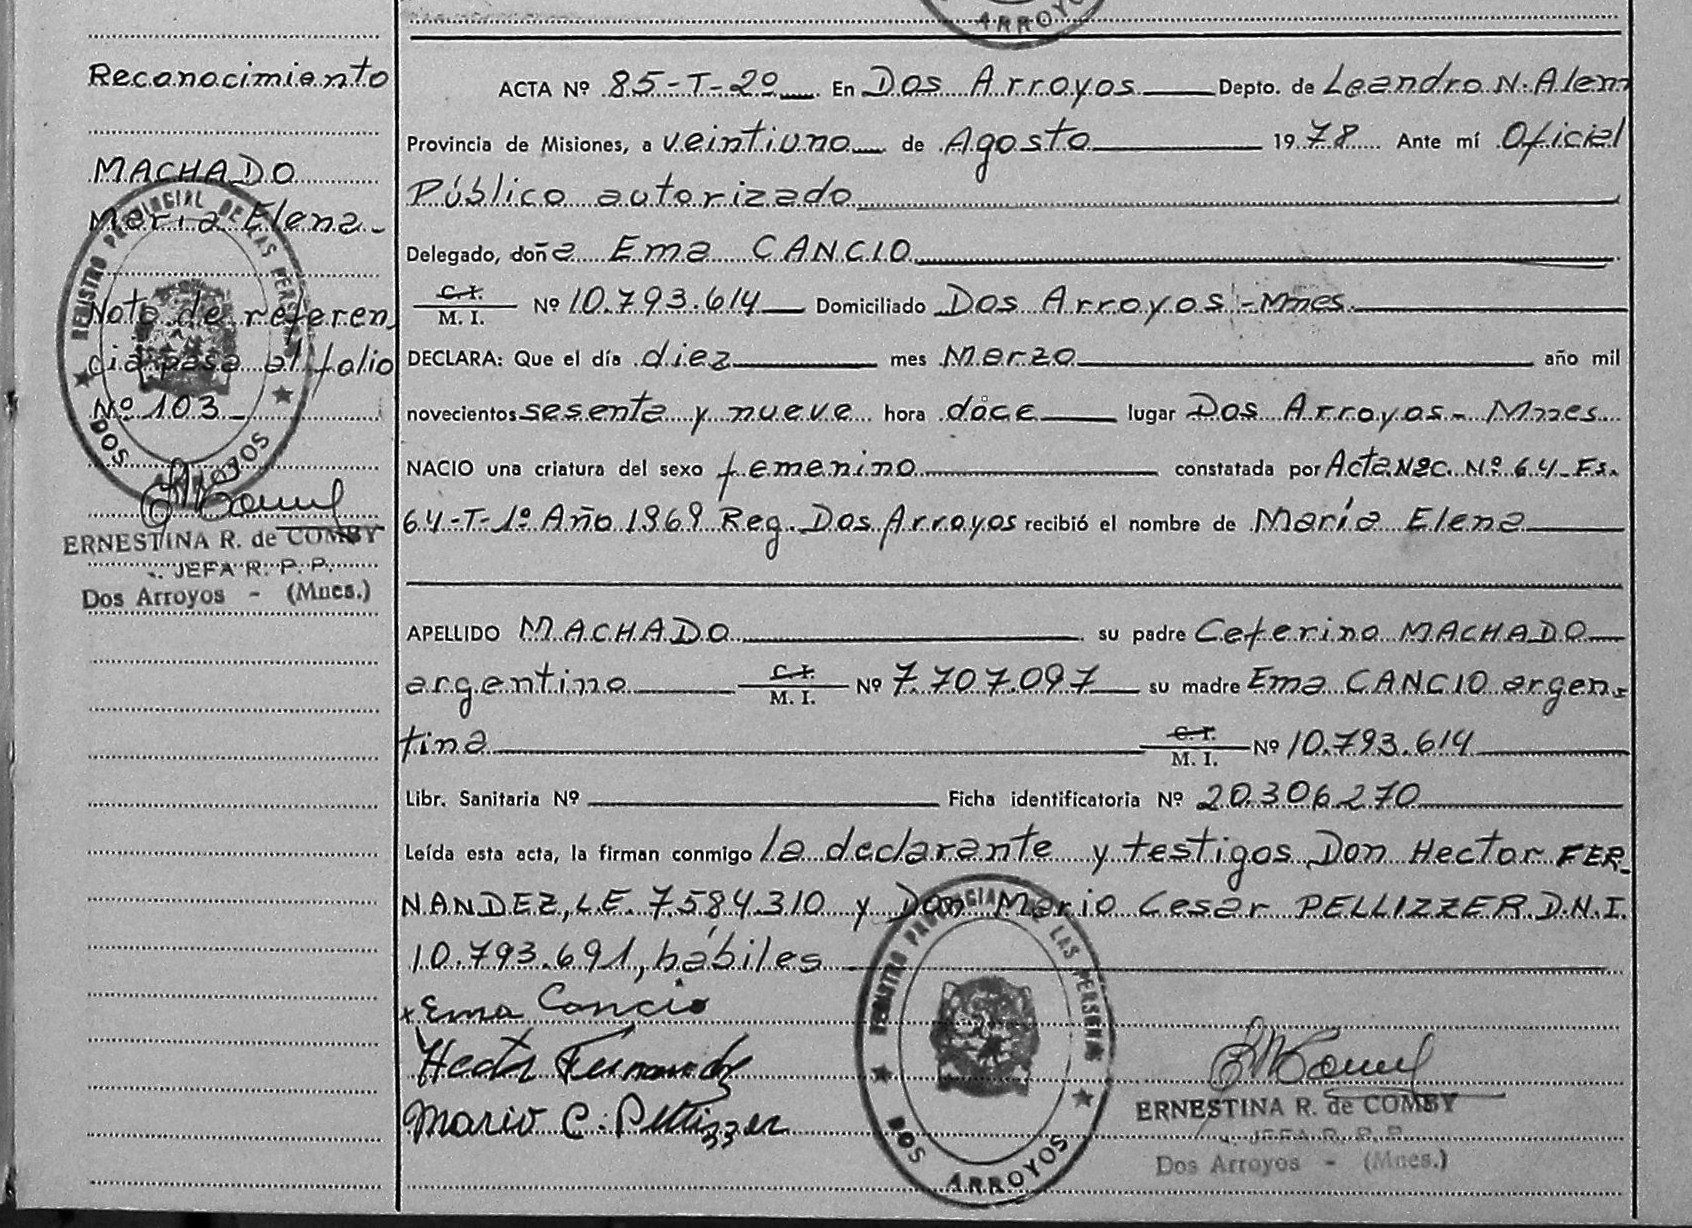 ARROYOS
Reconocimiento
MACHADO
María Elena.-
Nota de referen
cia pasa al folio
Nº 103
REGISTRO PROVINCIAL DE LAS PERSONAS
DOS ARROYOS
ERNESTINA R. de COMBY
JEFA R. P. P.
Dos Arroyos - (Mnes.)
ACTA Nº 85-T-2º En Dos Arroyos Depto. de Leandro N. Alem
Provincia de Misiones, a veintiuno de Agosto 1978 Ante mí Oficial
Público autorizado
Delegado, doña Ema CANCIO
C.I. / M. I. Nº 10.793.614 Domiciliado Dos Arroyos - Mnes.
DECLARA: Que el día diez mes Marzo año mil
novecientos sesenta y nueve hora doce lugar Dos Arroyos - Mnes
NACIO una criatura del sexo femenino constatada por Acta Nac. Nº 64 Fs.
64-T-1º Año 1969 Reg. Dos Arroyos recibió el nombre de María Elena
APELLIDO MACHADO su padre Ceferino MACHADO
argentino C.I. / M. I. Nº 7.707.097 su madre Ema CANCIO argen-
tina C.I. / M. I. Nº 10.793.614
Libr. Sanitaria Nº Ficha identificatoria Nº 20.306.270
Leída esta acta, la firman conmigo la declarante y testigos Don Hector FER-
NANDEZ, L.E. 7.584.310 y Don Mario Cesar PELLIZZER D.N.I.
10.793.691, hábiles
x Ema Cancio
Hector Fernandez
Mario C. Pellizzer
REGISTRO PROVINCIAL DE LAS PERSONAS
DOS ARROYOS
ERNESTINA R. de COMBY
JEFA R. P. P.
Dos Arroyos - (Mnes.)